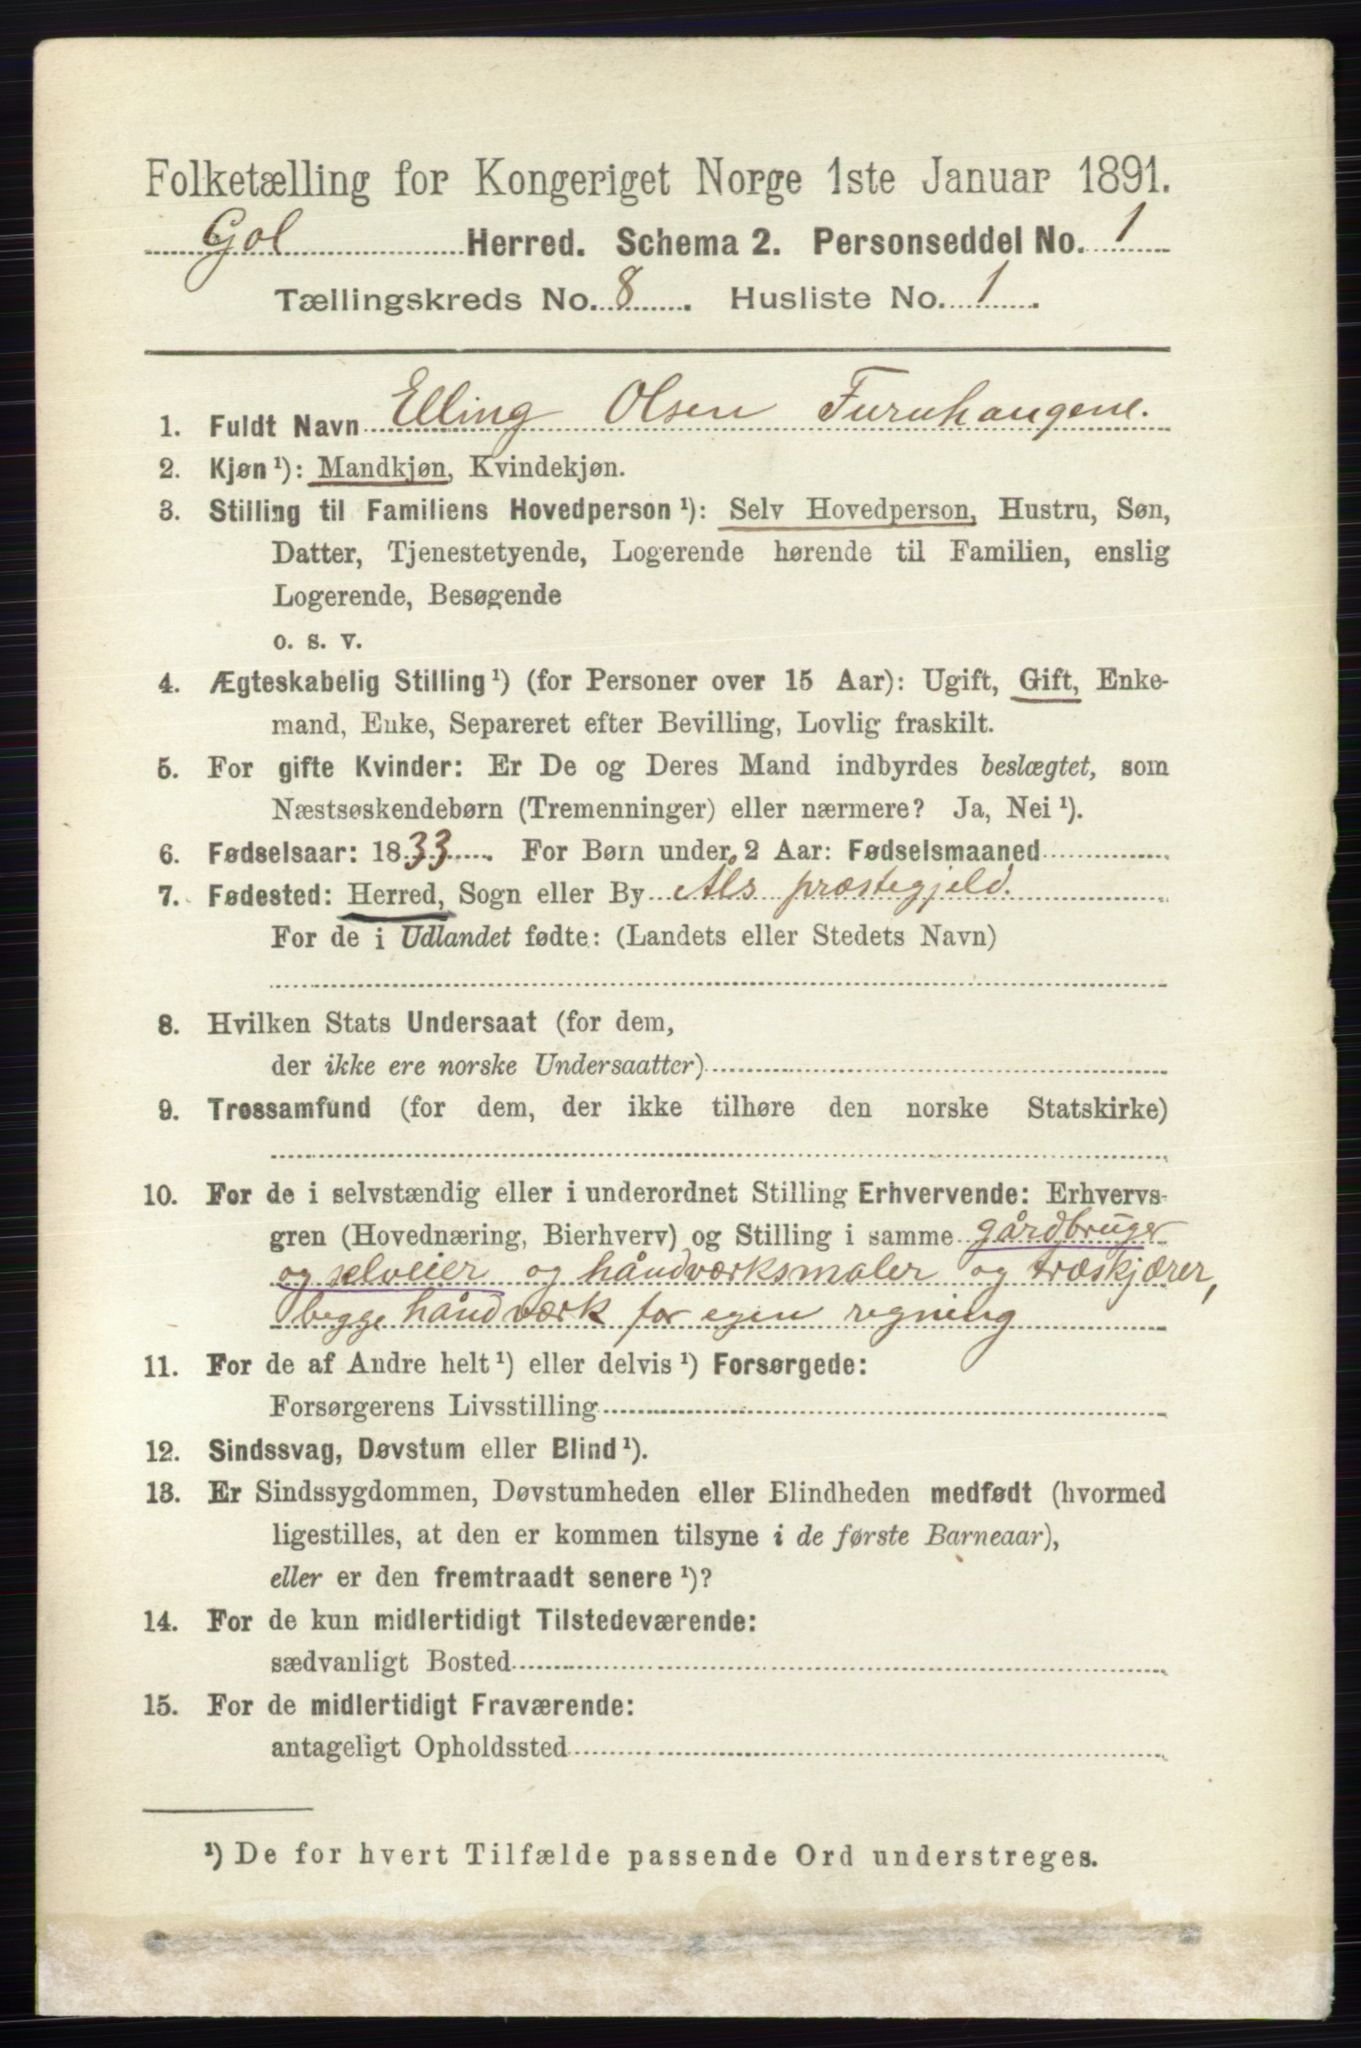 Folketælling for Kongeriget Norge 1ste Januar 1891.
Gol Herred. Schema 2. Personseddel No. 1
Tællingskreds No. 8. Husliste No. 1.
1. Fuldt Navn Elling Olsen Furuhaugene.
2. Kjøn¹): Mandkjøn, Kvindekjøn.
3. Stilling til Familiens Hovedperson¹): Selv Hovedperson, Hustru, Søn,
Datter, Tjenestetyende, Logerende hørende til Familien, enslig
Logerende, Besøgende
o. s. v.
4. Ægteskabelig Stilling¹) (for Personer over 15 Aar): Ugift, Gift, Enke-
mand, Enke, Separeret efter Bevilling, Lovlig fraskilt.
5. For gifte Kvinder: Er De og Deres Mand indbyrdes beslægtet, som
Næstsøskendebørn (Tremenninger) eller nærmere? Ja, Nei¹).
6. Fødselsaar: 1833. For Børn under 2 Aar: Fødselsmaaned
7. Fødested: Herred, Sogn eller By Åls præstegjeld.
For de i Udlandet fødte: (Landets eller Stedets Navn)
8. Hvilken Stats Undersaat (for dem,
der ikke ere norske Undersaatter)
9. Trossamfund (for dem, der ikke tilhøre den norske Statskirke)
10. For de i selvstændig eller i underordnet Stilling Erhvervende: Erhvervs-
gren (Hovednæring, Bierhverv) og Stilling i samme gårdbruger
og selveier og håndværksmaler og træskjærer,
begge håndværk for egen regning
11. For de af Andre helt¹) eller delvis¹) Forsørgede:
Forsørgerens Livsstilling
12. Sindssvag, Døvstum eller Blind¹).
13. Er Sindssygdommen, Døvstumheden eller Blindheden medfødt (hvormed
ligestilles, at den er kommen tilsyne i de første Barneaar),
eller er den fremtraadt senere¹)?
14. For de kun midlertidigt Tilstedeværende:
sædvanligt Bosted
15. For de midlertidigt Fraværende:
antageligt Opholdssted
¹) De for hvert Tilfælde passende Ord understreges.